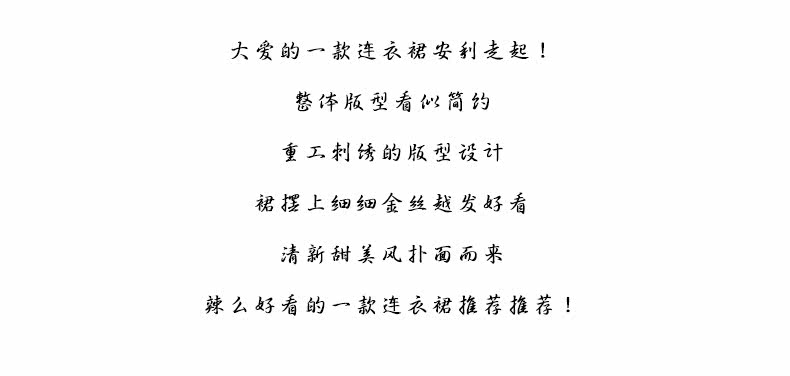 大爱的一款连衣裙安利走起！
整体版型看似简约
重工刺绣的版型设计
裙摆上细细金丝越发好看
清新甜美风扑面而来
辣么好看的一款连衣裙推荐推荐！